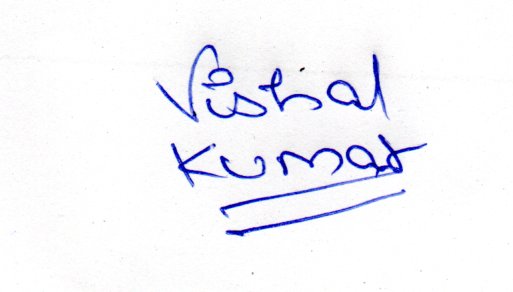 Vishal
Kumar